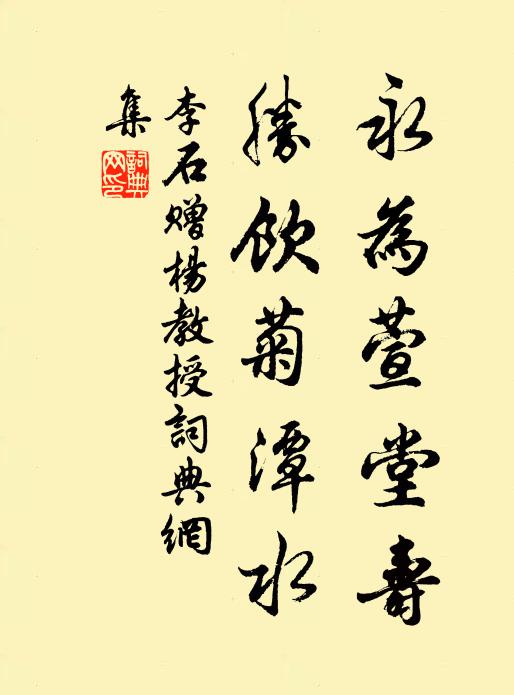 永為萱堂壽
勝飲菊潭水
李石贈楊教授詞典網
集
詞典網印